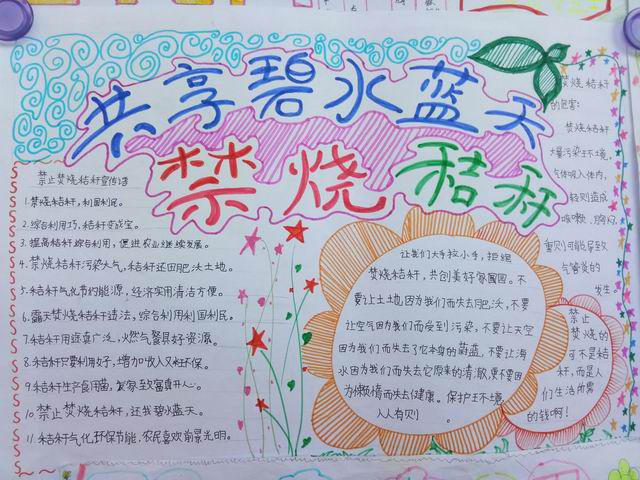 共享碧水蓝天
禁烧秸秆
禁止焚烧秸秆宣传语
1.禁烧秸秆，利国利民。
2.综合利用巧，秸秆变成宝。
3.提高秸秆综合利用，促进农业继续发展。
4.焚烧秸秆污染大气，秸秆还田肥沃土地。
5.秸秆气化节约能源，经济实用清洁方便。
6.露天焚烧秸秆违法，综合利用利国利民。
7.秸秆用途真广泛，火燃气餐具好资源。
8.秸秆只要利用好，增加收入又环保。
9.秸秆生产食用菌，发家致富真开心。
10.禁止焚烧秸秆，还我碧水蓝天。
11.秸秆气化环保节能，农民喜欢前景光明。
让我们大手拉小手，拒绝
焚烧秸秆，共创美好家园。不
要让土地因为我们而失去肥沃，不要
让空气因为我们而受到污染，不要让天空
因为我们而失去了它本身的蔚蓝，不要让海
水因为我们而失去它原来的清澈，更不要因
为懒惰而失去健康。保护环境，
人人有则。
焚烧秸秆
的危害：
焚烧秸秆
大量污染环境，
气体吸入体内，
轻则造成
咳嗽、胸闷
重则可能导致
气管炎的
发生。
禁止
焚烧的
可不是秸
秆，而是人
们生活所需
的钱啊！